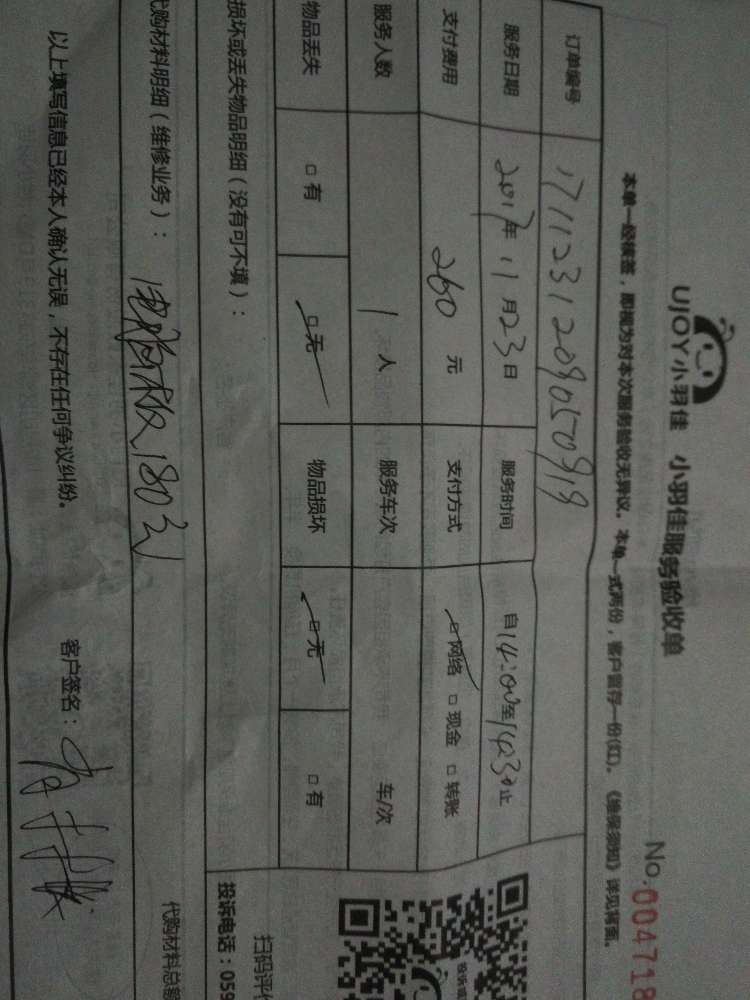 UJOY小羽佳 小羽佳服务验收单
No.004718
本单一经横签，即视为对本次服务验收无异议。本单一式两份，客户留存一份(红)。《维保须知》详见背面。
订单编号 1711231209050919
服务日期 2017年11月23日 服务时间 自14:00至1430止
支付费用 260元 支付方式 □网络 □现金 □转账
服务人数 1人 服务车次 车/次
物品丢失 □有 □无 物品损坏 □无 □有
损坏或丢失物品明细（没有可不填）：
代购材料明细（维修业务）： 电脑板180元
代购材料总额
以上填写信息已经本人确认无误，不存在任何争议纠纷。 客户签名：
扫码评价
投诉电话：059